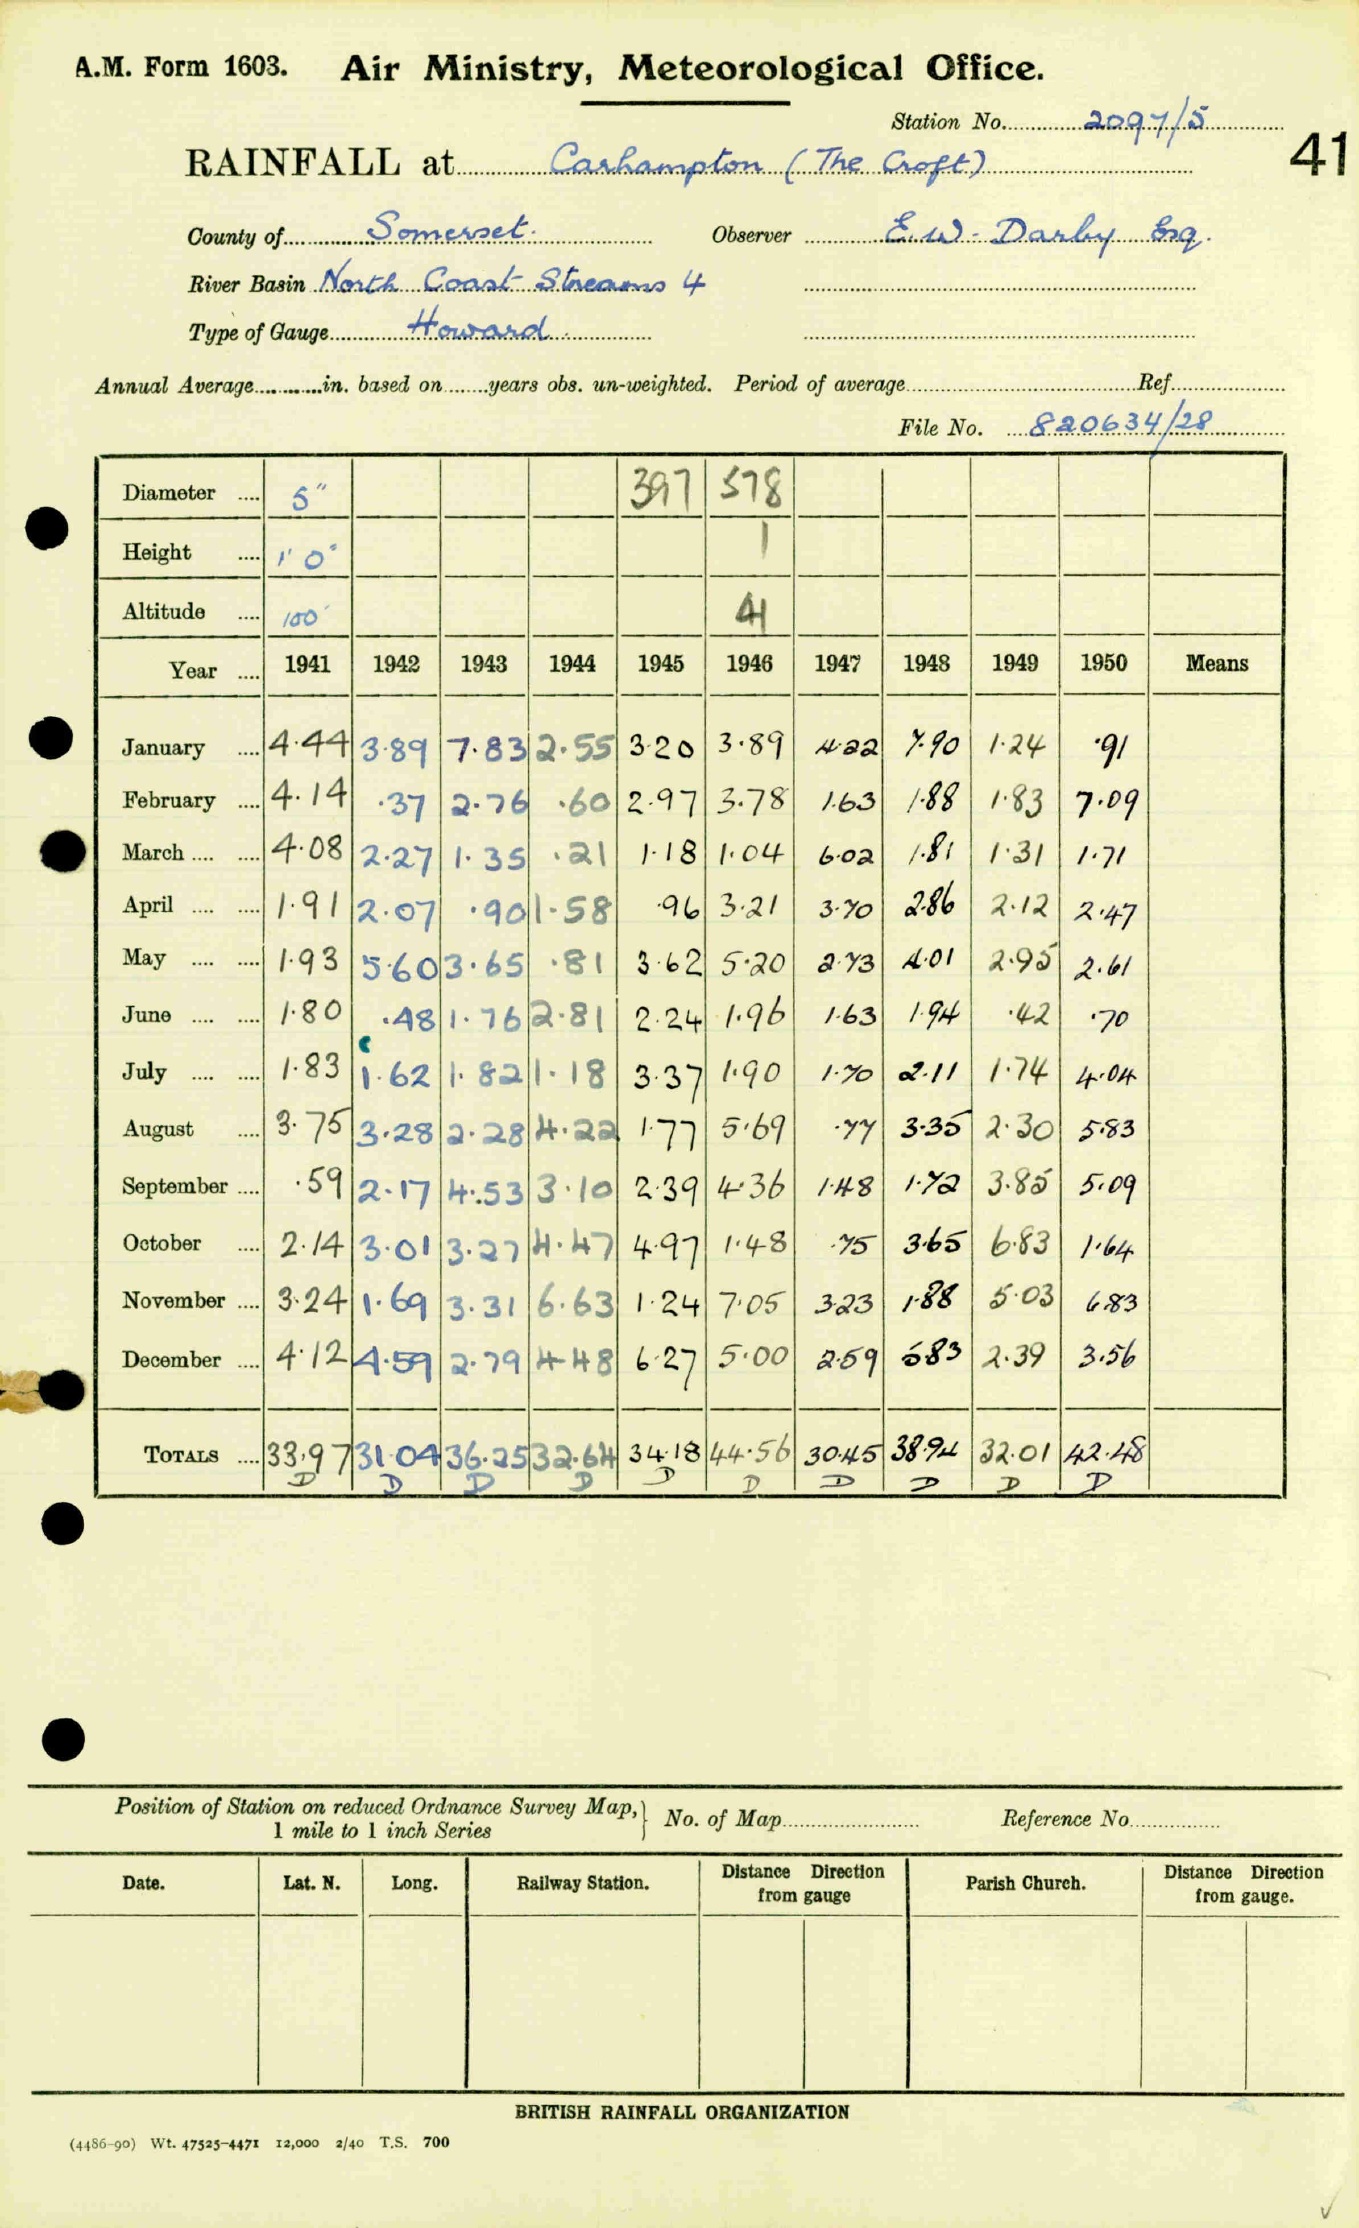 A.M. Form 1603. Air Ministry, Meteorological Office.
Station No. 2097/5
41
RAINFALL at Carhampton (The Croft)
County of Somerset. Observer E.W. Darby Esq.
River Basin North Coast Streams 4
Type of Gauge Howard
Annual Average in. based on years obs. un-weighted. Period of average Ref.
File No. 820634/28
Diameter .... 5" 397 578
Height .... 1' 0" 1
Altitude .... 100' 41
Year .... 1941 1942 1943 1944 1945 1946 1947 1948 1949 1950 Means
January .... 4.44 3.89 7.83 2.55 3.20 3.89 4.22 7.90 1.24 .91
February .... 4.14 .37 2.76 .60 2.97 3.78 1.63 1.88 1.83 7.09
March .... .... 4.08 2.27 1.35 .21 1.18 1.04 6.02 1.81 1.31 1.71
April .... .... 1.91 2.07 .90 1.58 .96 3.21 3.70 2.86 2.12 2.47
May .... .... 1.93 5.60 3.65 .81 3.62 5.20 2.73 4.01 2.95 2.61
June .... .... 1.80 .48 1.76 2.81 2.24 1.96 1.63 1.94 .42 .70
July .... .... 1.83 1.62 1.82 1.18 3.37 1.90 1.70 2.11 1.74 4.04
August .... 3.75 3.28 2.28 4.22 1.77 5.69 .77 3.35 2.30 5.83
September .... .59 2.17 4.53 3.10 2.39 4.36 1.48 1.72 3.85 5.09
October .... 2.14 3.01 3.27 4.47 4.97 1.48 .75 3.65 6.83 1.64
November .... 3.24 1.69 3.31 6.63 1.24 7.05 3.23 1.88 5.03 6.83
December .... 4.12 4.59 2.79 4.48 6.27 5.00 2.59 5.83 2.39 3.56
TOTALS .... 33.97 31.04 36.25 32.64 34.18 44.56 30.45 38.94 32.01 42.48
D D D D D D D D D D
Position of Station on reduced Ordnance Survey Map, } No. of Map Reference No.
1 mile to 1 inch Series
Date. Lat. N. Long. Railway Station. Distance Direction from gauge Parish Church. Distance Direction from gauge.
BRITISH RAINFALL ORGANIZATION
(4486-90) Wt. 47525-4471 12,000 2/40 T.S. 700